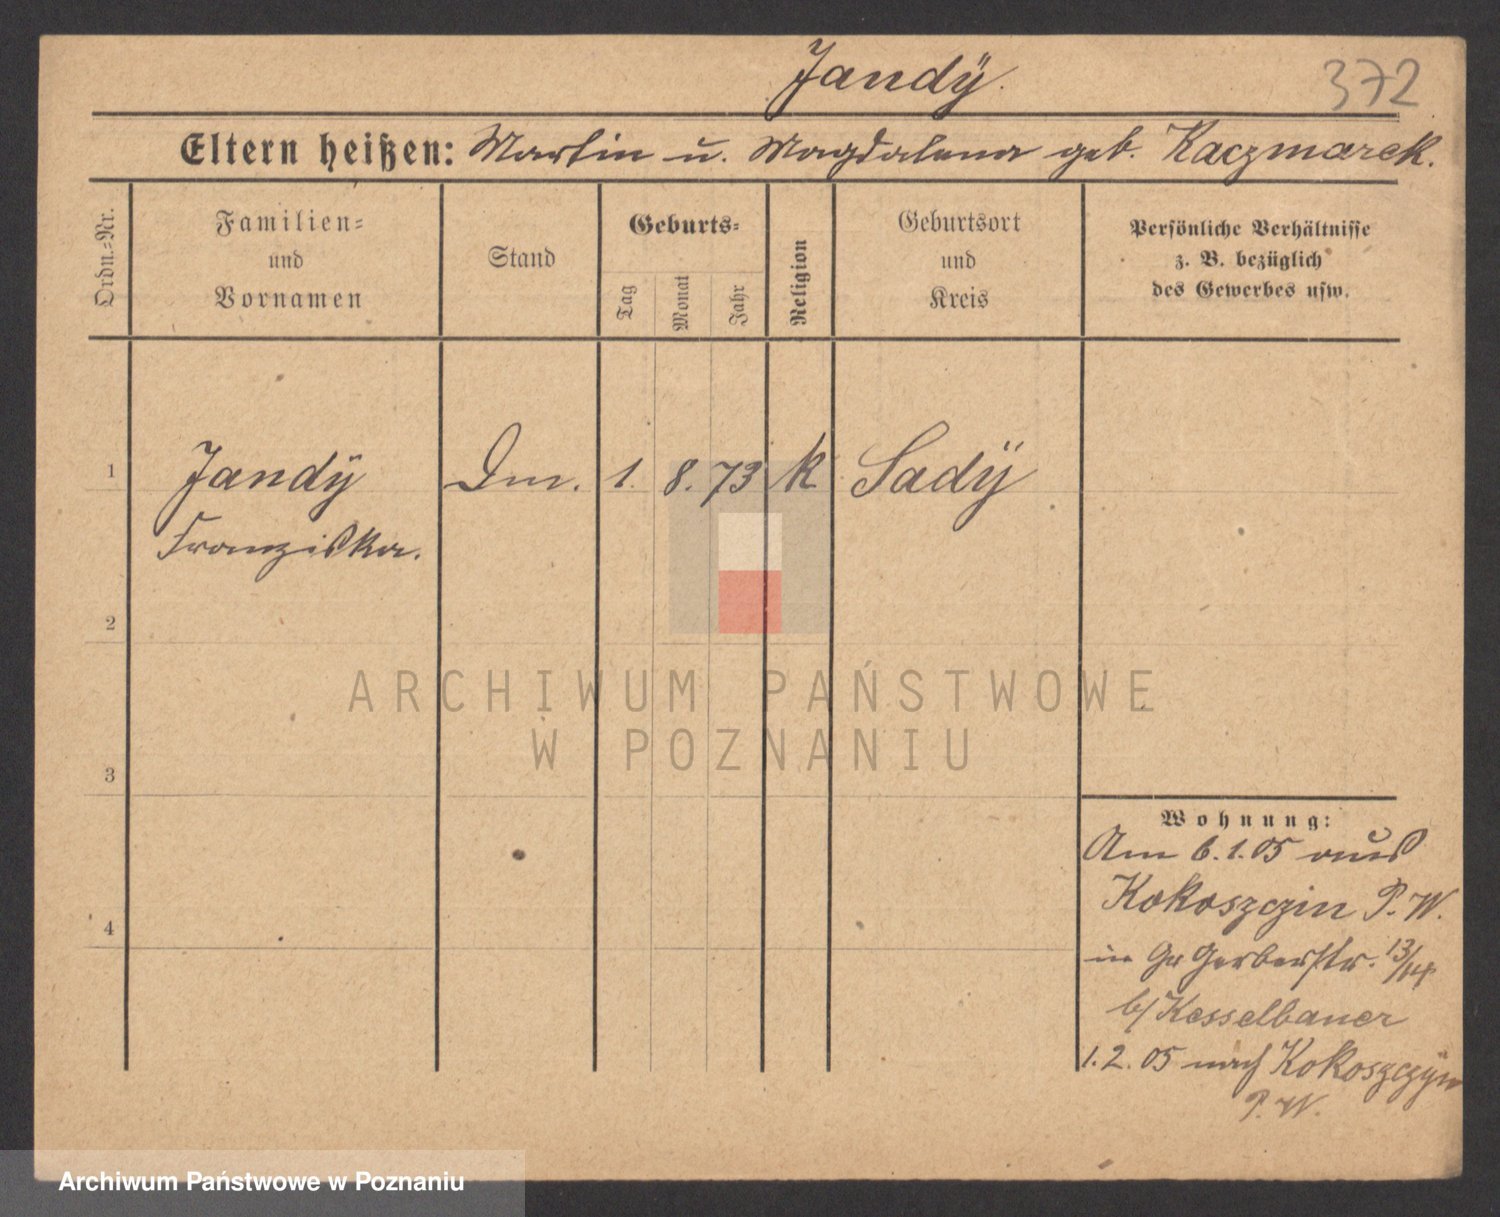 Jandÿ.
372
Eltern heißen: Martin u. Magdalena geb. Kaczmarek.
Ordn.=Nr.
Familien=
und
Vornamen
Stand
Geburts=
Tag
Monat
Jahr
Religion
Geburtsort
und
Kreis
Persönliche Verhältnisse
z. B. bezüglich
des Gewerbes usw.
1 Jandÿ Dm. 1. 8. 73 k Sadÿ
Franziska.
2
3
4
Wohnung:
Am 6.1.05 aus
Kokoszczin P. W.
in Gr Gerberstr. 13/14
b/ Kesselbauer
1.2.05 nach Kokoszczÿn
P. W.
ARCHIWUM PAŃSTWOWE
W POZNANIU
Archiwum Państwowe w Poznaniu